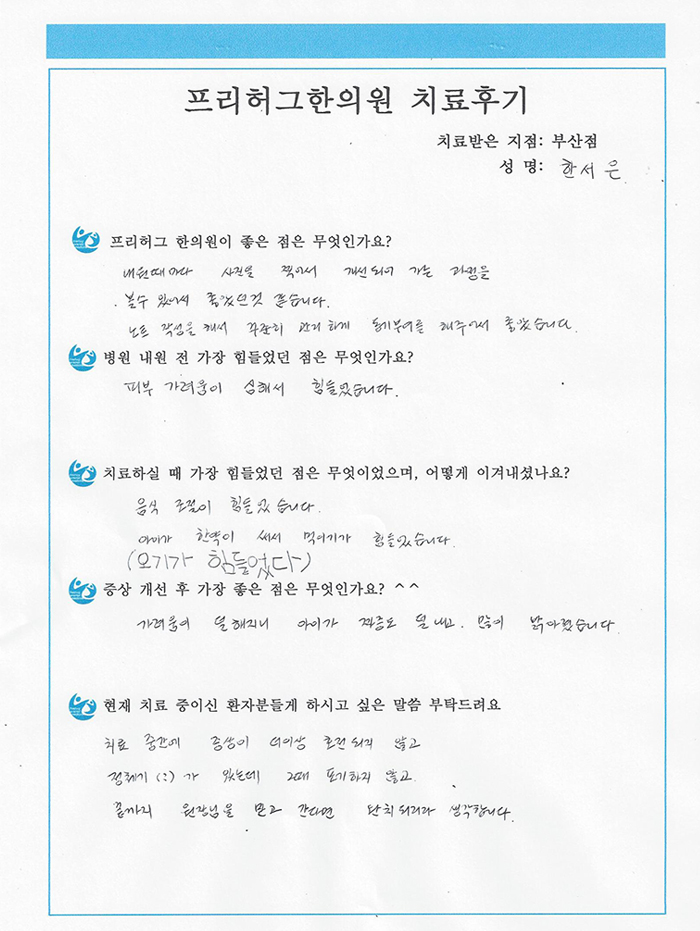 프리허그한의원 치료후기
치료받은 지점: 부산점
성 명: 한서은
프리허그 한의원이 좋은 점은 무엇인가요?
내원때마다 사진을 찍어서 개선되어 가는 과정을
볼수 있어서 좋았던것 같습니다.
노트 작성을 해서 꾸준히 관리하게 동기부여를 해주어서 좋았습니다.
병원 내원 전 가장 힘들었던 점은 무엇인가요?
피부 가려움이 심해서 힘들었습니다.
치료하실 때 가장 힘들었던 점은 무엇이었으며, 어떻게 이겨내셨나요?
음식 조절이 힘들었습니다.
아이가 한약이 써서 먹이기가 힘들었습니다.
(오기가 힘들었다)
증상 개선 후 가장 좋은 점은 무엇인가요? ^ ^
가려움이 덜해지니 아이가 짜증도 덜내고. 많이 밝아졌습니다.
현재 치료 중이신 환자분들게 하시고 싶은 말씀 부탁드려요
치료 중간에 증상이 더이상 호전되지 않고
정체기(:)가 있는데 그때 포기하지 않고.
끝까지 원장님을 믿고 간다면 완치되리라 생각합니다.